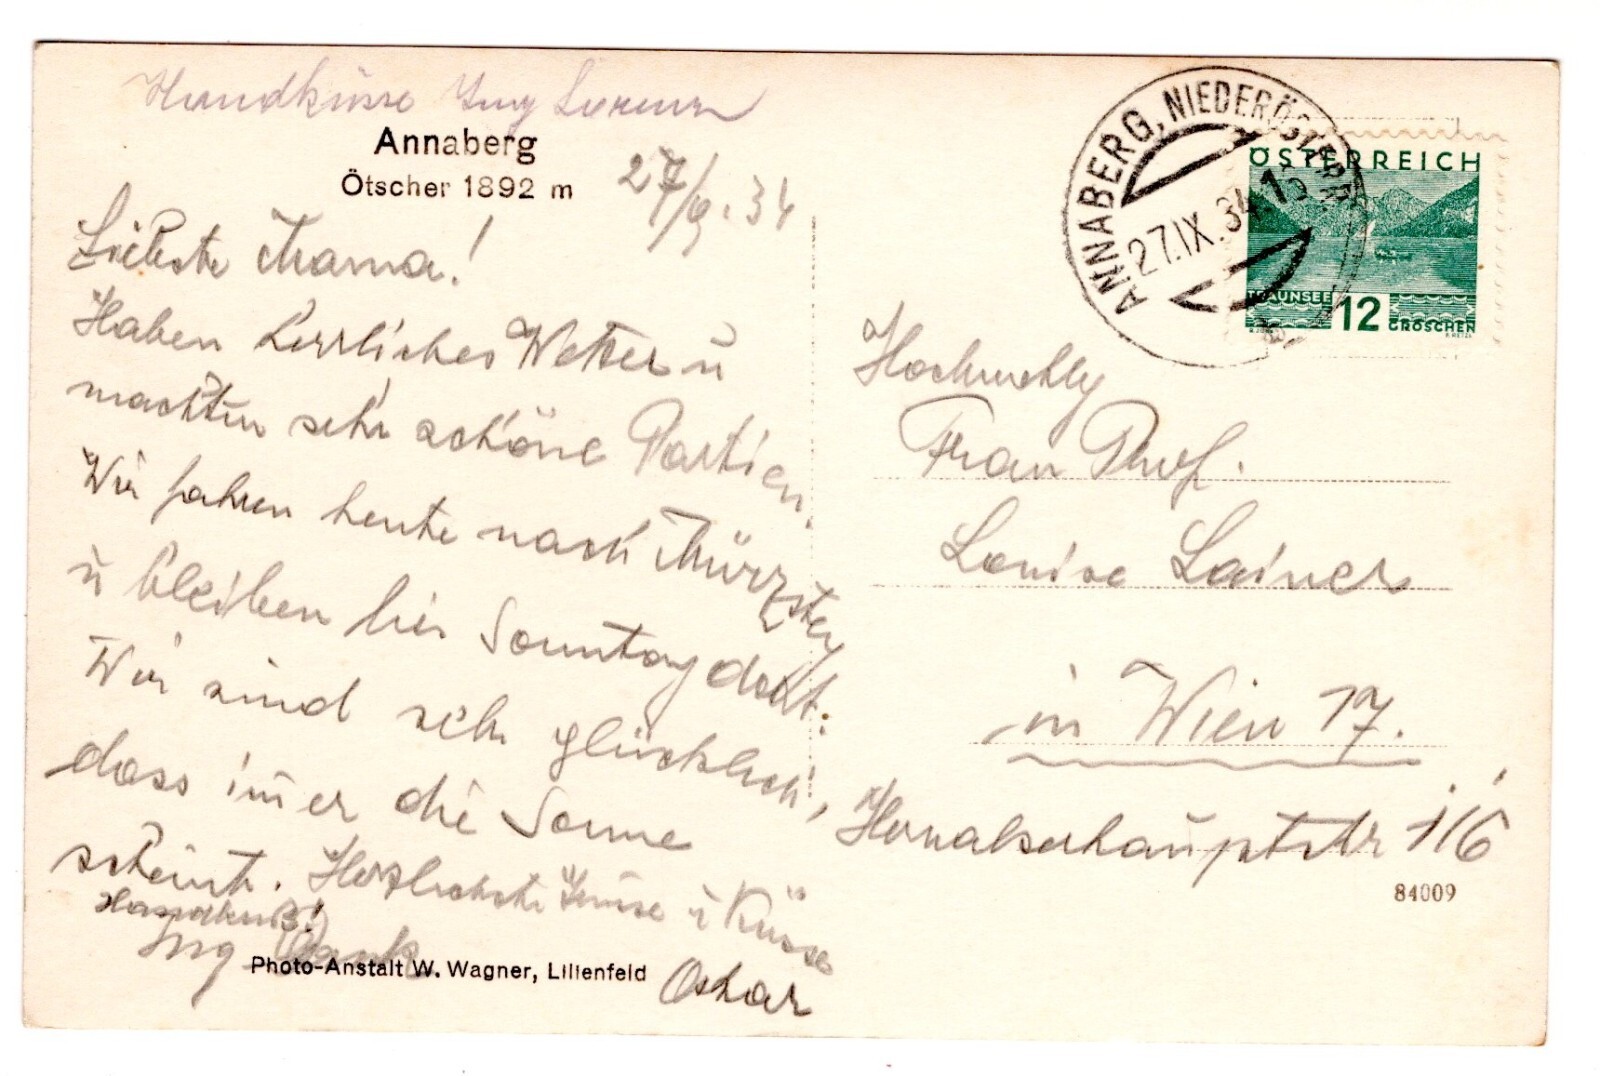 Handküsse Ing Lorenz
Annaberg
Ötscher 1892 m
27/9.34
Liebste Mama!
Haben herrliches Wetter u
machten sehr schöne Partien.
Wir fahren heute nach Mürzsteg
u bleiben bis Sonntag dort.
Wir sind sehr glücklich,
dass im̅er die Sonne
scheint. Herzlichste Grüsse u Küsse
Oskar
Handkuß!
Ing
Photo-Anstalt W. Wagner, Lilienfeld
ANNABERG, NIEDERÖSTERR.
27.IX.34
ÖSTERREICH
TRAUNSEE 12 GROSCHEN
Hochwohlg
Frau Prof.
Louise Lainer
in Wien 17.
Hernalserhauptstr 116
84009